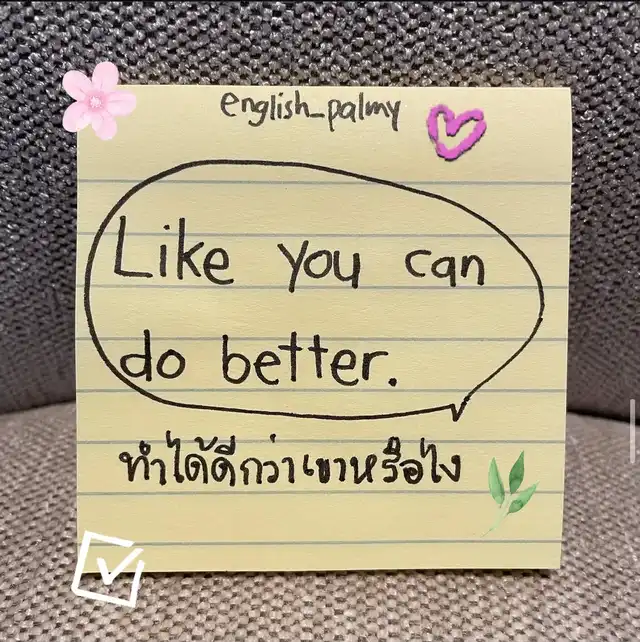 english_palmy
Like you can
do better.
ทำได้ดีกว่าเขาหรือไง